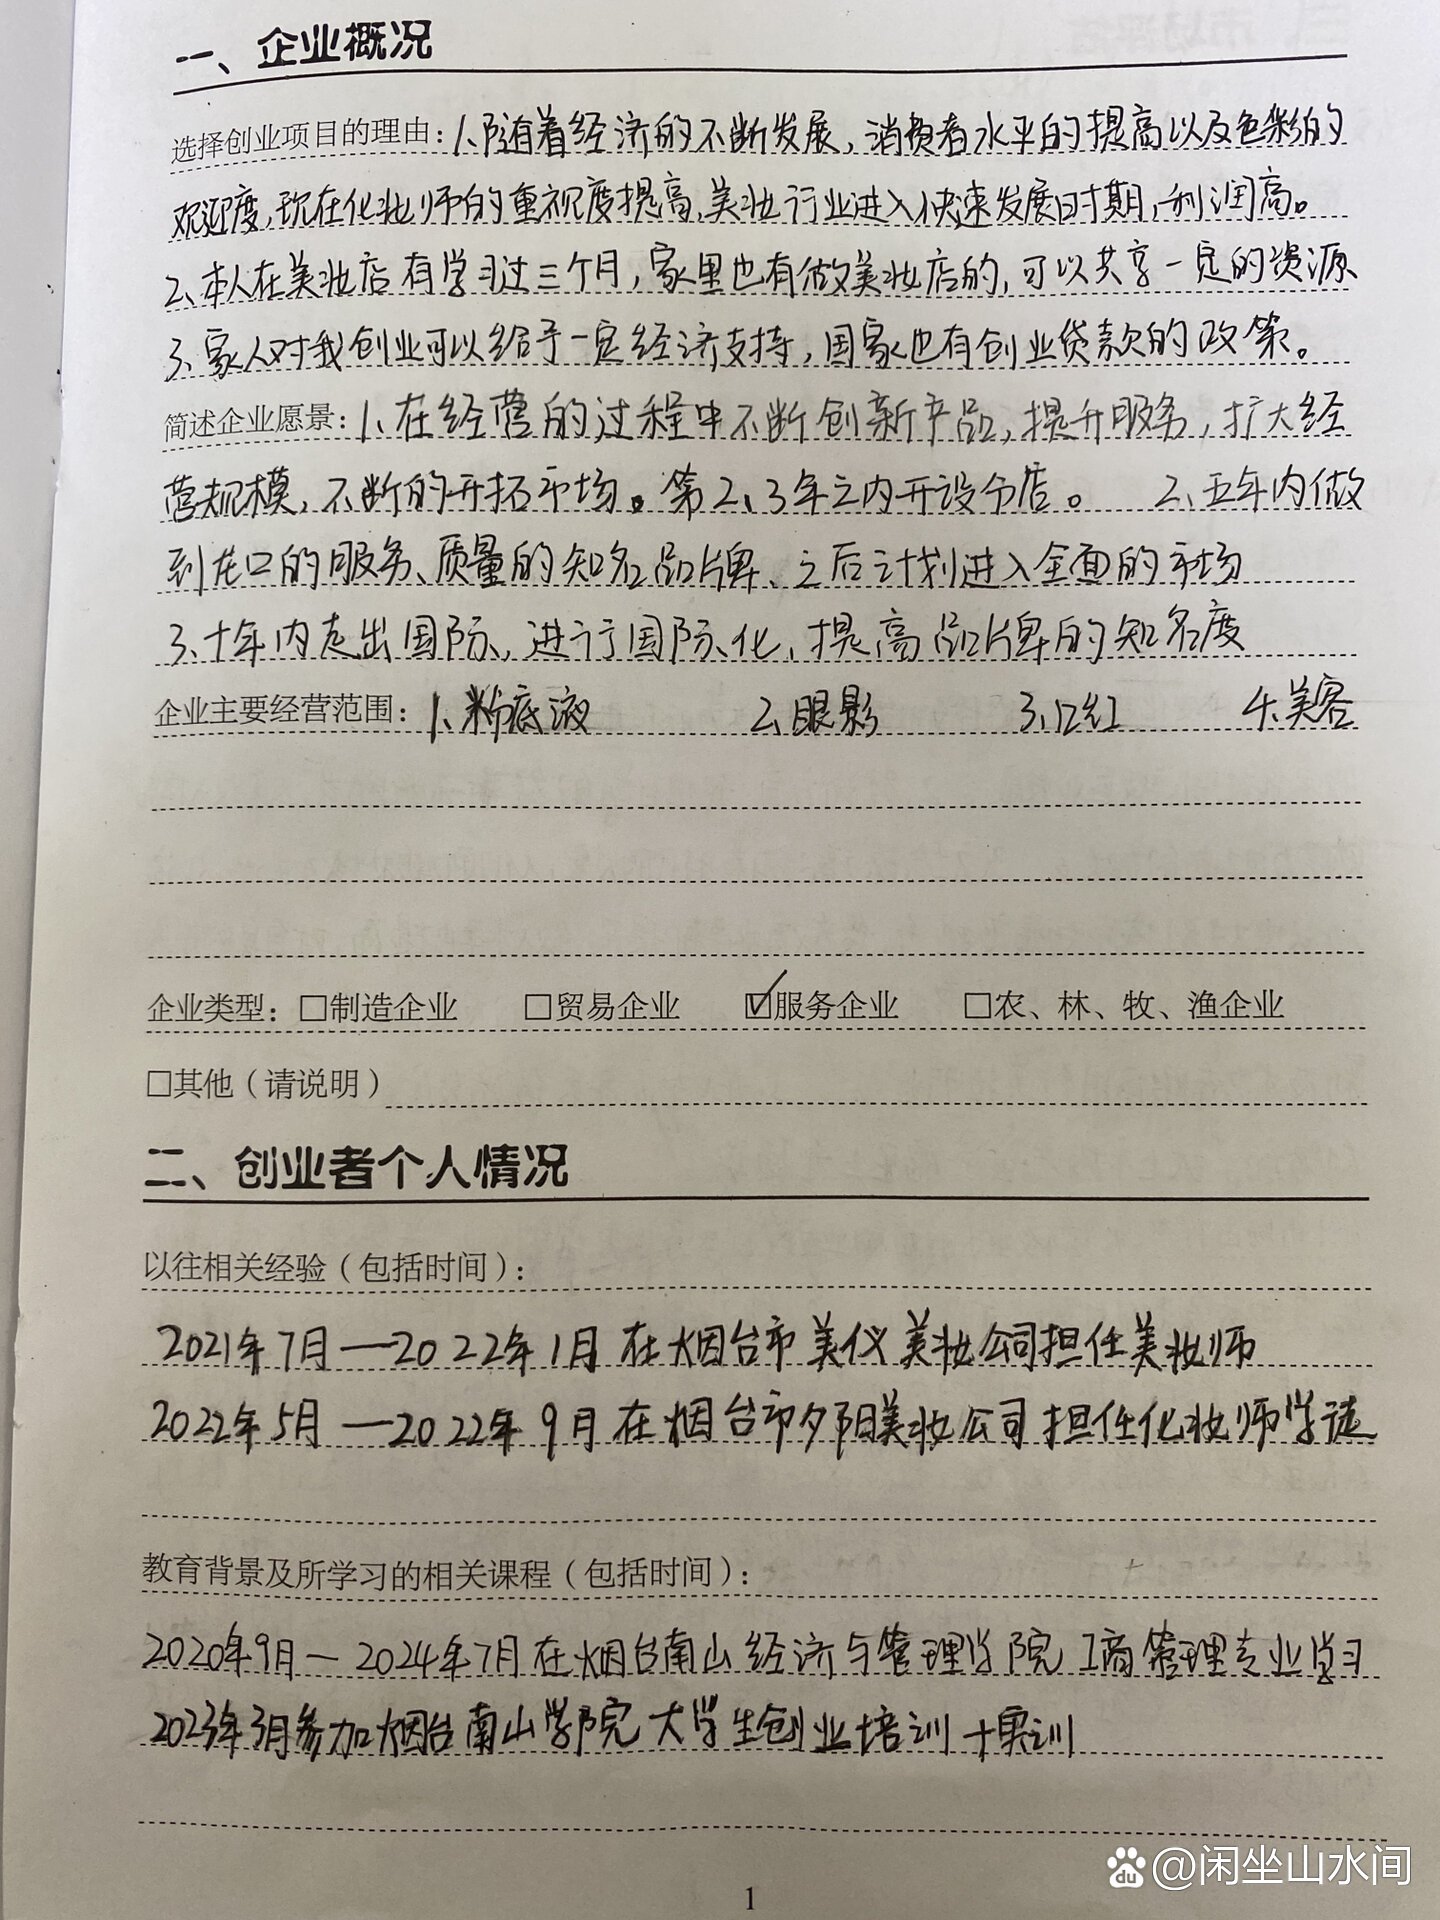 一、企业概况
选择创业项目的理由：1、随着经济的不断发展，消费者水平的提高以及色彩的
欢迎度，现在化妆师的重视度提高，美妆行业进入快速发展时期，利润高。
2、本人在美妆店有学习过三个月，家里也有做美妆店的，可以共享一定的资源、
3、家人对我创业可以给予一定经济支持，国家也有创业贷款的政策。
简述企业愿景：1、在经营的过程中不断创新产品，提升服务，扩大经
营规模，不断的开拓市场。第2、3年之内开设分店。 2、五年内做
到龙口的服务、质量的知名品牌、之后计划进入全面的市场
3、十年内走出国际，进行国际化，提高品牌的知名度
企业主要经营范围：1、粉底液 2、眼影 3、口红 4、美容
企业类型：□制造企业 □贸易企业 ☑服务企业 □农、林、牧、渔企业
□其他（请说明）
二、创业者个人情况
以往相关经验（包括时间）：
2021年7月—2022年1月在烟台市美仪美妆公司担任美妆师
2022年5月—2022年9月在烟台市夕阳美妆公司担任化妆师学徒
教育背景及所学习的相关课程（包括时间）：
2020年9月—2024年7月在烟台南山经济与管理学院工商管理专业学习
2023年3月参加烟台南山学院大学生创业培训+实训
1
du @闲坐山水间